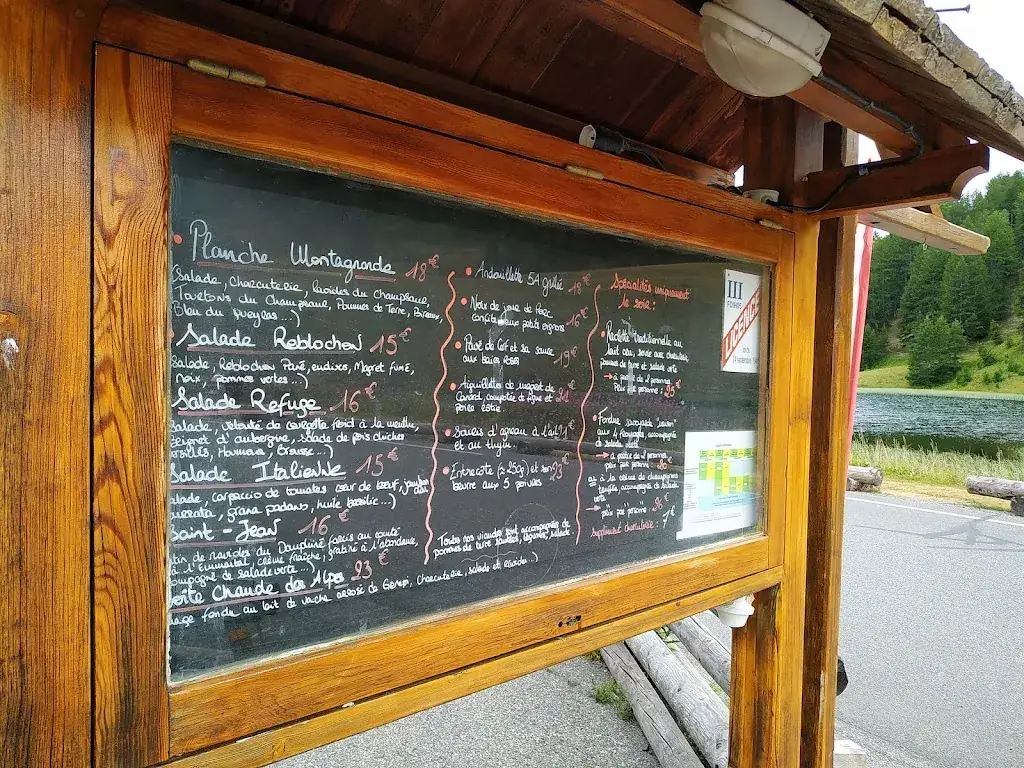 Planche Montagnarde 18€
Salade, charcuterie, ravioles du champsaur,
Tourtons du champsaur, Pommes de Terre, Poireaux,
Bleu du Queyras...)
Salade Reblochon 15€
Salade, Reblochon Pané, endives, Magret fumé,
noix, pommes vertes...)
Salade Refuge 16€
salade, velouté de courgette froid à la menthe,
beignet d'aubergine, salade de pois chiches
Houmous,
Salade Italienne 15€
salade, carpaccio de tomates cœur de bœuf, jambon
grana padano, huile basilic...)
Saint-Jean 16€
gratin de ravioles du Dauphiné farcis au comté,
à l'Emmental, crème fraîche, gratiné à l'
accompagné de salade verte...)
Boîte Chaude des Alpes 23€
fromage fondu au lait de vache arrosé de Génépi, charcuterie, salade et
Andouillette 5A grillée 18€
Noix de joue de Porc
confite aux petits oignons 16€
Pavé de Cerf et sa sauce
aux baies roses 19€
Aiguillettes de magret de
Canard, compotée de figue et
poire rôtie 21€
Souris d'agneau à l'ail
et au thym
Entrecôte (≈ 250g) et son 23€
beurre aux 5 poivres
Toutes nos viandes sont accompagnées de
pommes de terre légumes, salade.
Spécialités uniquement
le soir :
Raclette Traditionnelle au
lait cru, servie avec charcuterie,
pomme de terre et salade verte
→ à partir de 2 personnes
Prix par personne : 26€
Fondue savoyarde
aux 4 fromages, accompagnée
de salade verte
→ à partir de 2 personnes
prix par personne :
ou à la crème de champignons
truffée, accompagnée de salade
verte
→ prix par personne : 26€
supplément charcuterie : 7€
III
LICENCE